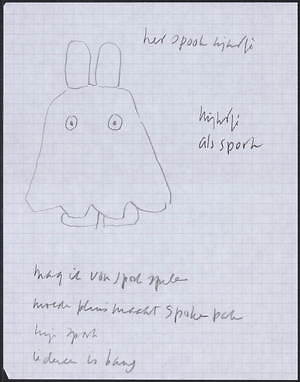 het spook nijntje
nijntje
als spook
mag ik van spook spelen
moeder pluis maakt spoke pak
nijn spook
iederen is bang